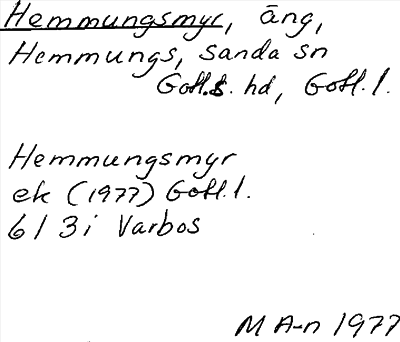 Hemmungsmyr, äng,
Hemmungs, Sanda sn
Gotl.s. hd, Gotl. l.
Hemmungsmyr
ek (1977) Gotl. l.
6 I 3 i Varbos
M A-n 1977